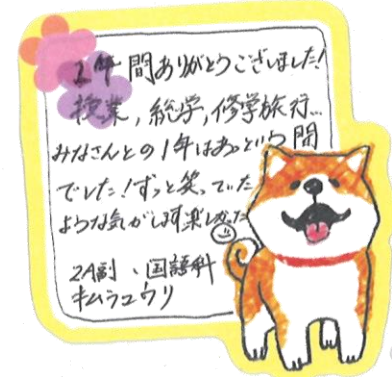 1年間ありがとうございました!
授業,総学,修学旅行...
みなさんとの1年はあっという間
でした!ずっと笑っていた
ような気がします楽しかった
2A副、国語科
キムラユウリ